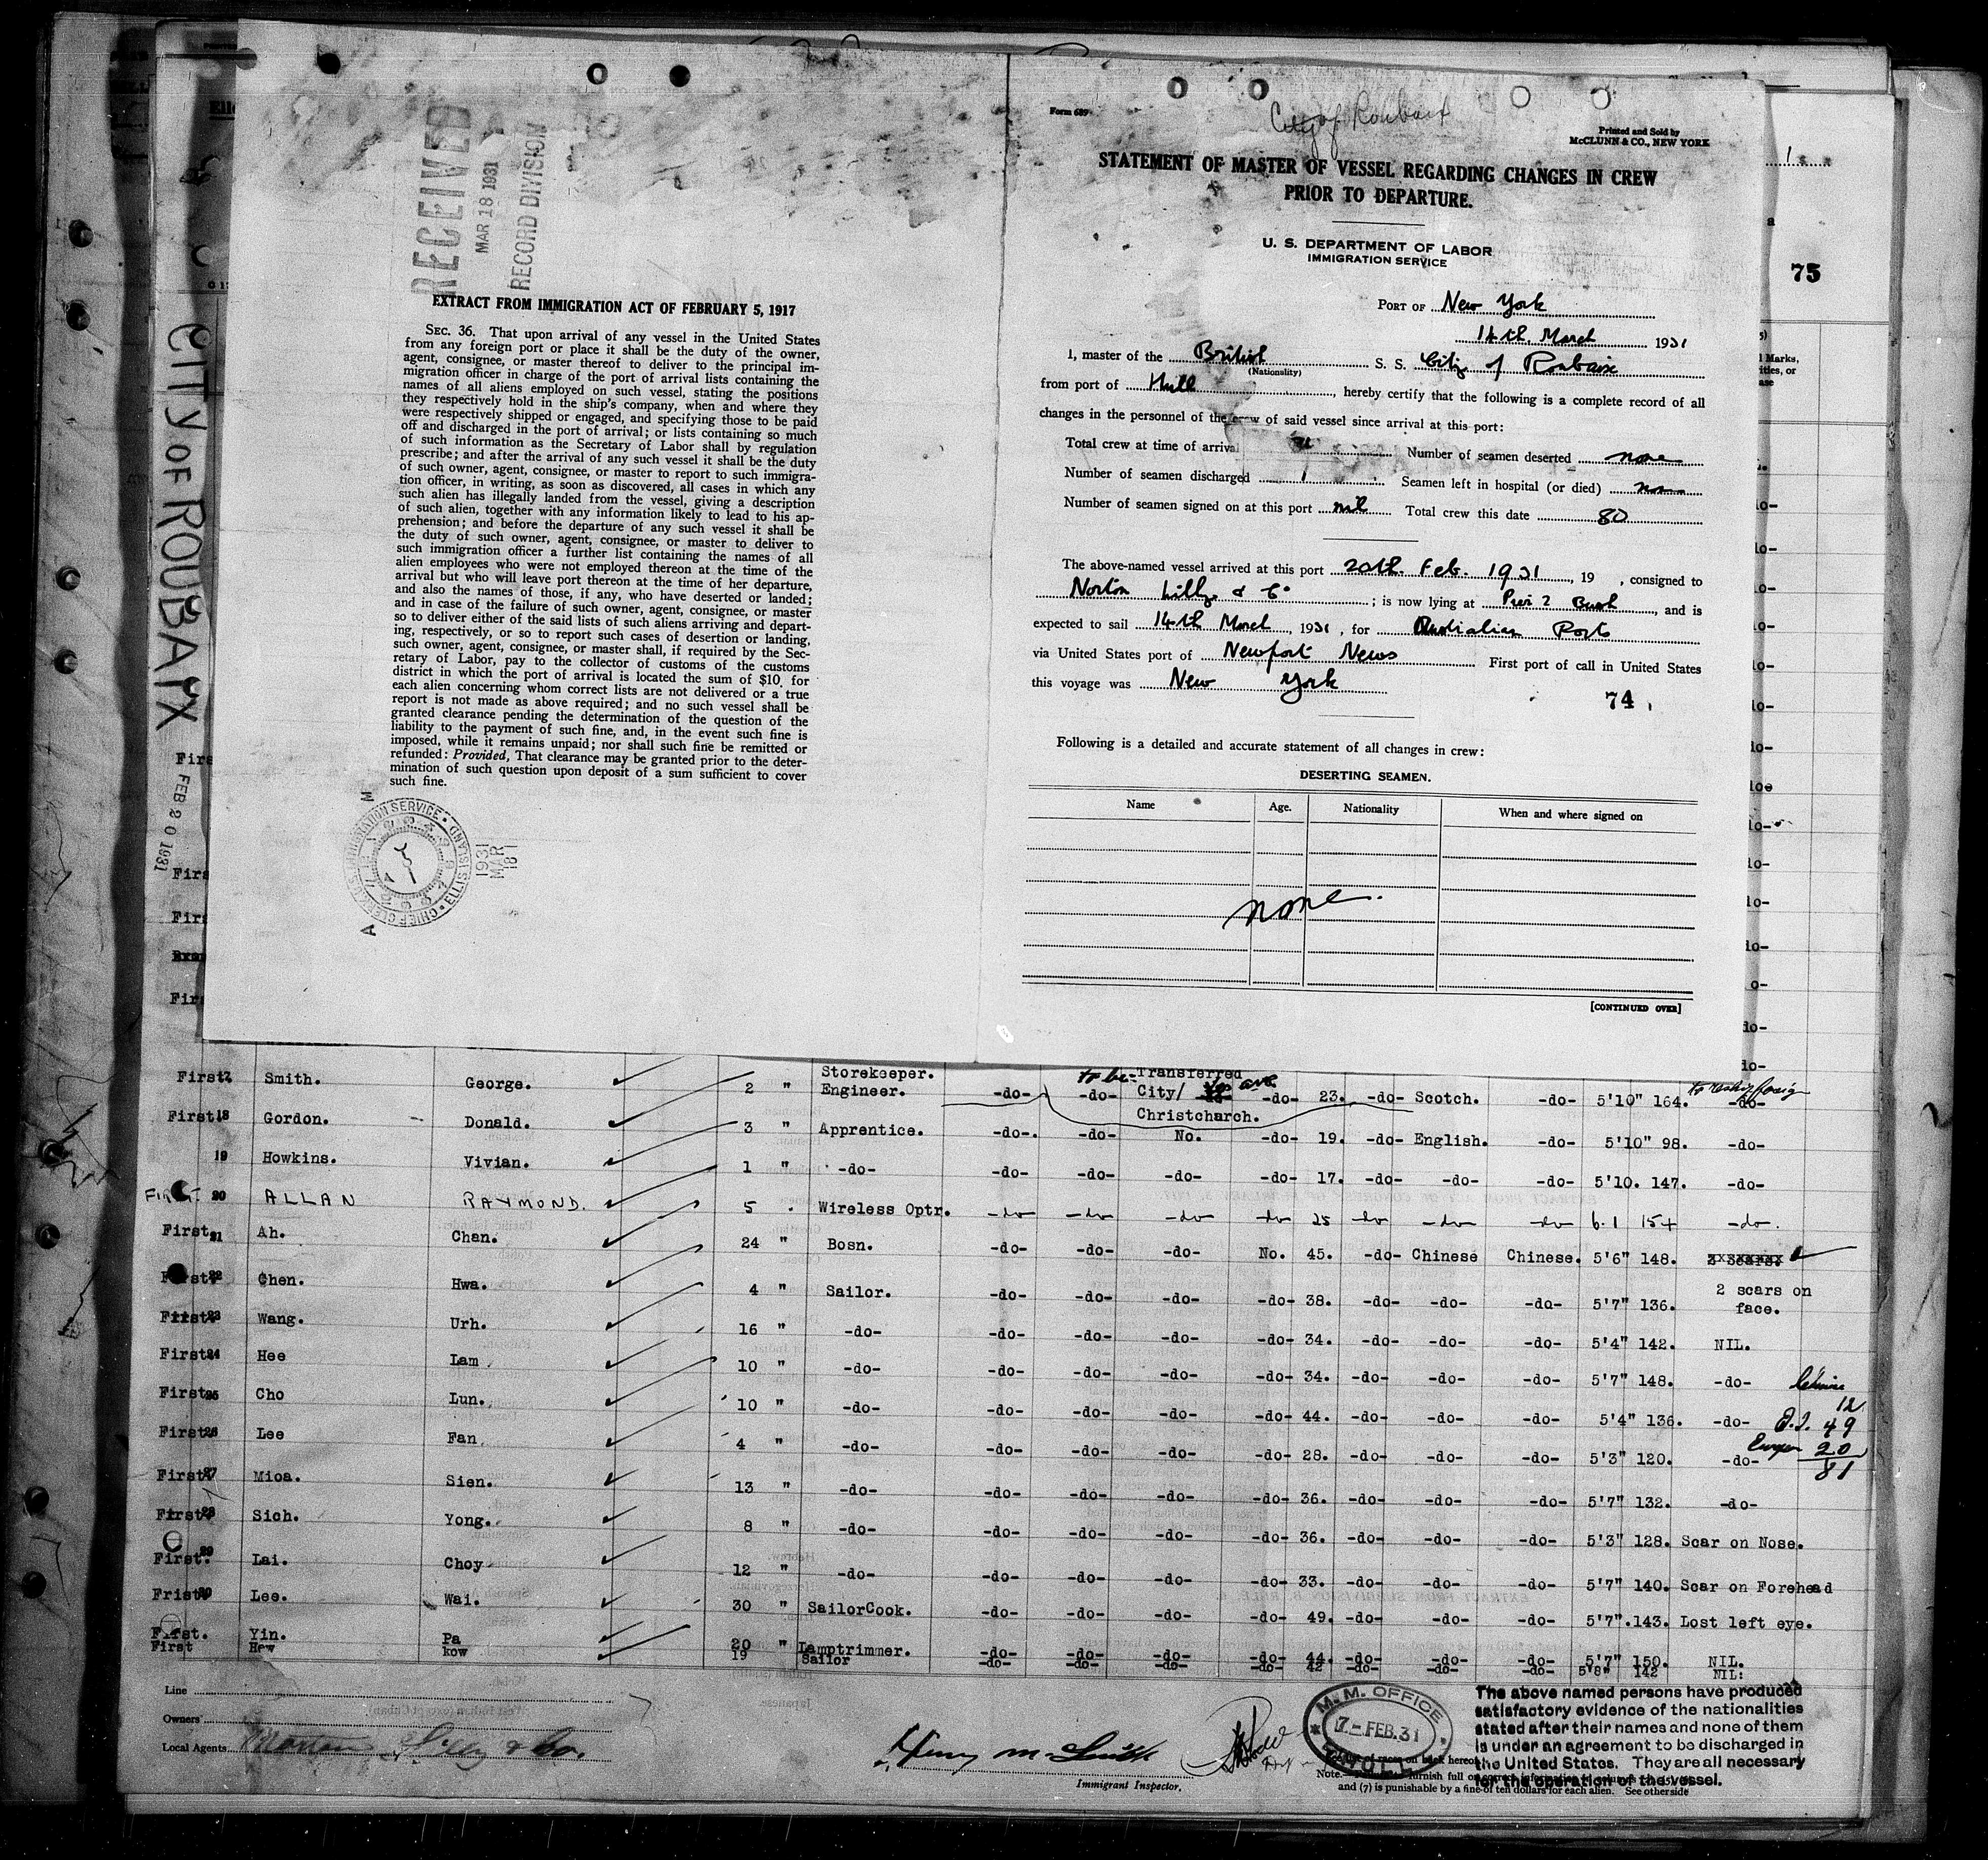 CITY OF ROUBAIX
FEB 20 1931
RECEIVED
MAR 18 1931
RECORD DIVISION
EXTRACT FROM IMMIGRATION ACT OF FEBRUARY 5, 1917
SEC. 36. That upon arrival of any vessel in the United States
from any foreign port or place it shall be the duty of the owner,
agent, consignee, or master thereof to deliver to the principal im-
migration officer in charge of the port of arrival lists containing the
names of all aliens employed on such vessel, stating the positions
they respectively hold in the ship's company, when and where they
were respectively shipped or engaged, and specifying those to be paid
off and discharged in the port of arrival; or lists containing so much
of such information as the Secretary of Labor shall by regulation
prescribe; and after the arrival of any such vessel it shall be the duty
of such owner, agent, consignee, or master to report to such immigra-
tion officer, in writing, as soon as discovered, all cases in which any
such alien has illegally landed from the vessel, giving a description
of such alien, together with any information likely to lead to his ap-
prehension; and before the departure of any such vessel it shall be
the duty of such owner, agent, consignee, or master to deliver to
such immigration officer a further list containing the names of all
alien employees who were not employed thereon at the time of the
arrival but who will leave port thereon at the time of her departure,
and also the names of those, if any, who have deserted or landed;
and in case of the failure of such owner, agent, consignee, or master
so to deliver either of the said lists of such aliens arriving and depart-
ing, respectively, or so to report such cases of desertion or landing,
such owner, agent, consignee, or master shall, if required by the Sec-
retary of Labor, pay to the collector of customs of the customs
district in which the port of arrival is located the sum of $10 for
each alien concerning whom correct lists are not delivered or a true
report is not made as above required; and no such vessel shall be
granted clearance pending the determination of the question of the
liability to the payment of such fine, and, in the event such fine is
imposed, while it remains unpaid; nor shall such fine be remitted or
refunded: Provided, That clearance may be granted prior to the deter-
mination of such question upon deposit of a sum sufficient to cover
such fine.
CHIEF CLERK U.S. IMMIGRATION SERVICE ELLIS ISLAND
1931 MAR 18
Form 689
City of Roubaix
Printed and Sold by
McCLUNN & CO., NEW YORK
STATEMENT OF MASTER OF VESSEL REGARDING CHANGES IN CREW
PRIOR TO DEPARTURE.
U. S. DEPARTMENT OF LABOR
IMMIGRATION SERVICE
75
PORT OF New York
14th March 1931
I, master of the British S. S. City of Roubaix
(Nationality)
from port of Hull, hereby certify that the following is a complete record of all
changes in the personnel of the crew of said vessel since arrival at this port:
Total crew at time of arrival 81 Number of seamen deserted none
Number of seamen discharged 1 Seamen left in hospital (or died) none
Number of seamen signed on at this port nil Total crew this date 80
The above-named vessel arrived at this port 20th Feb. 1931, 19 , consigned to
Norton Lilly & Co; is now lying at Pier 2 Bush, and is
expected to sail 14th March, 1931, for Australian Ports
via United States port of Newport News First port of call in United States
this voyage was New York
74
Following is a detailed and accurate statement of all changes in crew:
DESERTING SEAMEN.
Name Age. Nationality When and where signed on
none.
[CONTINUED OVER]
First 17 Smith. George. 2 " Storekeeper. Engineer. -do- to be -do- Transferred City/ Christcharch. -do- 23. -do- Scotch. -do- 5'10" 164. -do-
First 18 Gordon. Donald. 3 " Apprentice. -do-. -do- No. -do- 19. -do- English. -do- 5'10" 98. -do-
19 Howkins. Vivian. 1 " -do- -do- -do- -do- -do- 17. -do- -do- -do- 5'10. 147. -do-
FIRST 20 ALLAN RAYMOND. 5 " Wireless Optr. -do -do -do -do 25 -do -do -do 6.1 154 -do.
First 21 Ah. Chan. 24 " Bosn. -do- -do- -do- No. 45. -do- Chinese Chinese. 5'6" 148.
First 22 Chen. Hwa. 4 " Sailor. -do- -do- -do- -do- 38. -do- -do- -do- 5'7" 136. 2 scars on face.
First 23 Wang. Urh. 16 " -do- -do- -do- -do- -do- 34. -do- -do- -do- 5'4" 142. NIL.
First 24 Hee Lam 10 " -do- -do- -do- -do- -do- 34. -do- -do- -do- 5'7" 148. -do-
First 25 Cho Lun. 10 " -do- -do- -do- -do- -do- 44. -do- -do- -do- 5'4" 136. -do-
First 26 Lee Fan 4 " -do- -do- -do- -do- -do- 28. -do- -do- -do- 5'3" 120. -do-
First 27 Mioa. Sien. 13 " -do- -do- -do- -do- -do- 36. -do- -do- -do- 5'7" 132. -do-
First 28 Sich. Yong. 8 " -do- -do- -do- -do- -do- 36. -do- -do- -do- 5'3" 128. Scar on Nose.
First. 29 Lai. Choy 12 " -do- -do- -do- -do- -do- 33. -do- -do- -do- 5'7" 140. Scar on Forehead
Frist 30 Lee. Wai. 30 " SailorCook. -do- -do- -do- -do- 49. -do- -do- -do- 5'7". 143. Lost left eye.
First. Yin. Pa 20 " Lamptrimmer. -do- -do- -do- -do- 44. -do- -do- -do- 5'7" 150. NIL.
First Hew kow 19 Sailor -do- -do- -do- -do- 42 -do- -do- -do- 5'8" 142 NIL:
12
49
20
81
Line
Owners
Local Agents Norton Lilly & Co.
Immigrant Inspector.
M. M. OFFICE
7-FEB.31
HULL
The above named persons have produced
satisfactory evidence of the nationalities
stated after their names and none of them
is under an agreement to be discharged in
the United States. They are all necessary
for the operation of the vessel.
and (7) is punishable by a fine of ten dollars for each alien. See other side